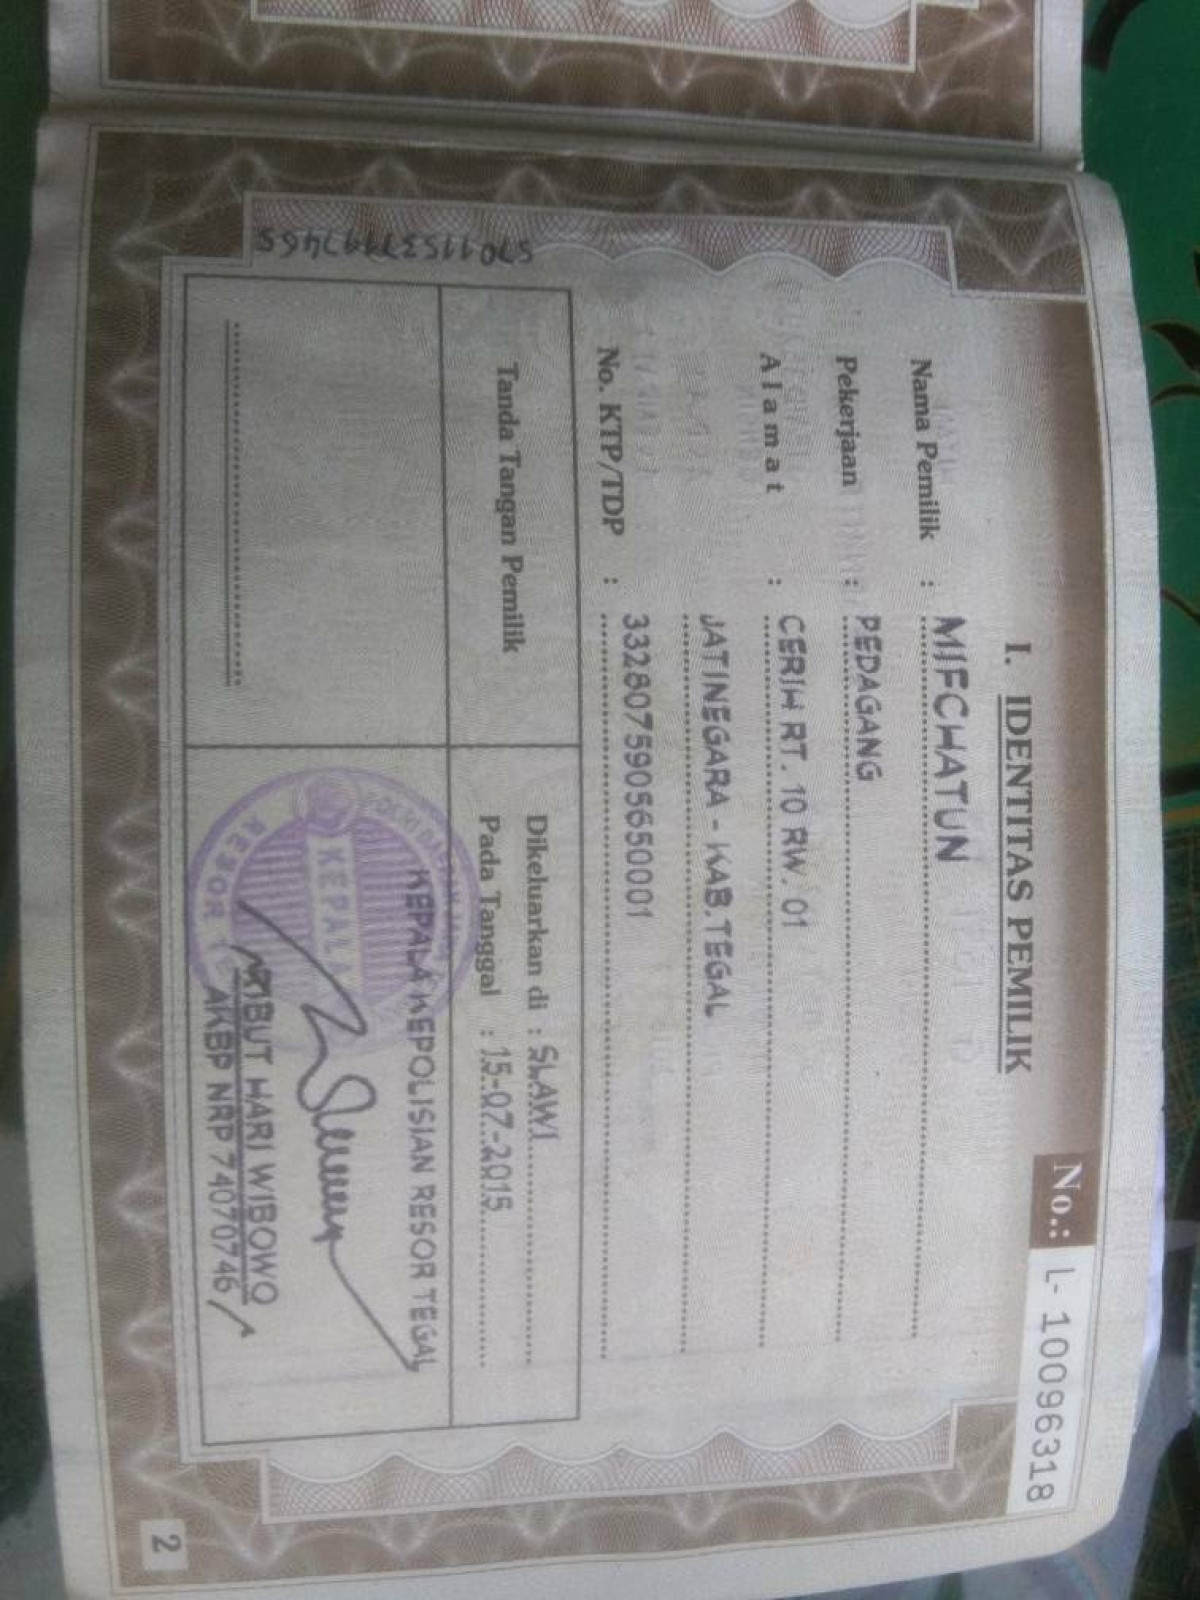 No.: L- 10096318
I. IDENTITAS PEMILIK
Nama Pemilik : MIFCHATUN
Pekerjaan : PEDAGANG
Alamat : CERIH RT. 10 RW. 01
JATINEGARA - KAB.TEGAL
No. KTP/TDP : 3328075905650001
Tanda Tangan Pemilik
Dikeluarkan di : SLAWI
Pada Tanggal : 15-07-2015
KEPALA KEPOLISIAN RESOR TEGAL
KEPALA
RESOR
AKBP NRP 74070746
HARI WIBOWO
2